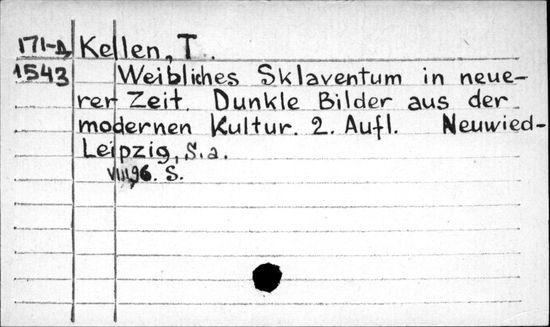 171-D Kellen, T.
1543 Weibliches Sklaventum in neue-
rer Zeit. Dunkle Bilder aus der
modernen Kultur. 2. Aufl. Neuwied-
Leipzig, S.a.
VIII,96. S.